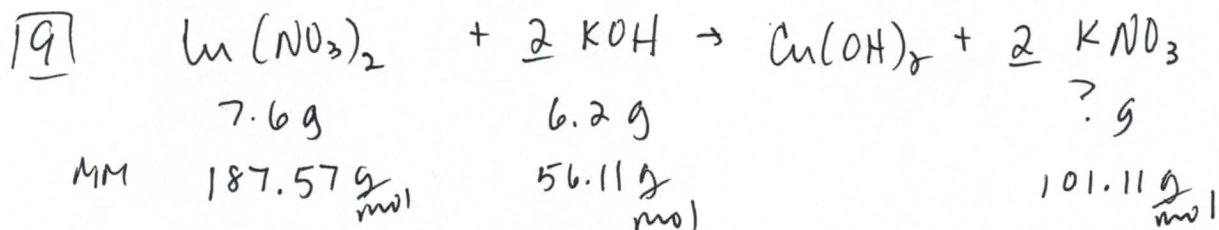 9 Cu(NO₃)₂ + 2 KOH → Cu(OH)₂ + 2 KNO₃
7.6 g 6.2 g ? g
MM 187.57 g/mol 56.11 g/mol 101.11 g/mol